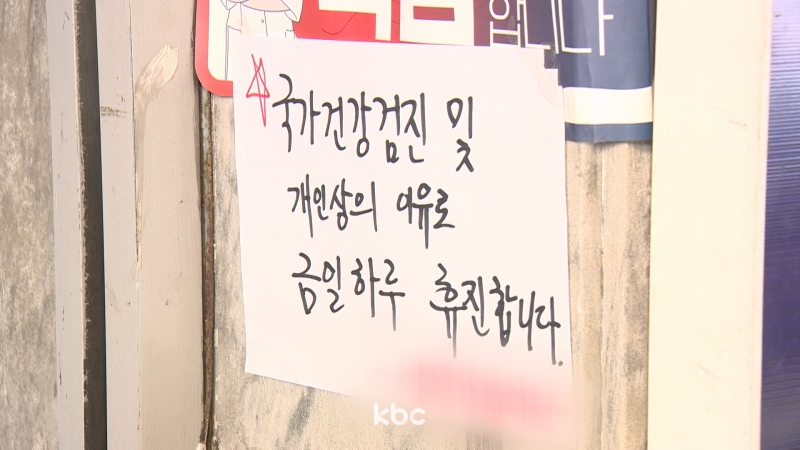 습니다
국가건강검진 및
개인상의 이유로
금일하루 휴진합니다.
kbc